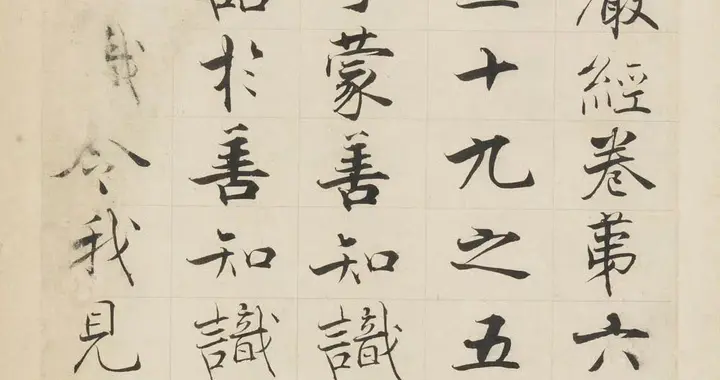 嚴經卷第六
十九之五
蒙善知識
於善知識
令我見